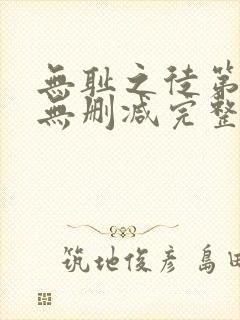 無耻之徒第
無删减完整
筑地俊彦 島田